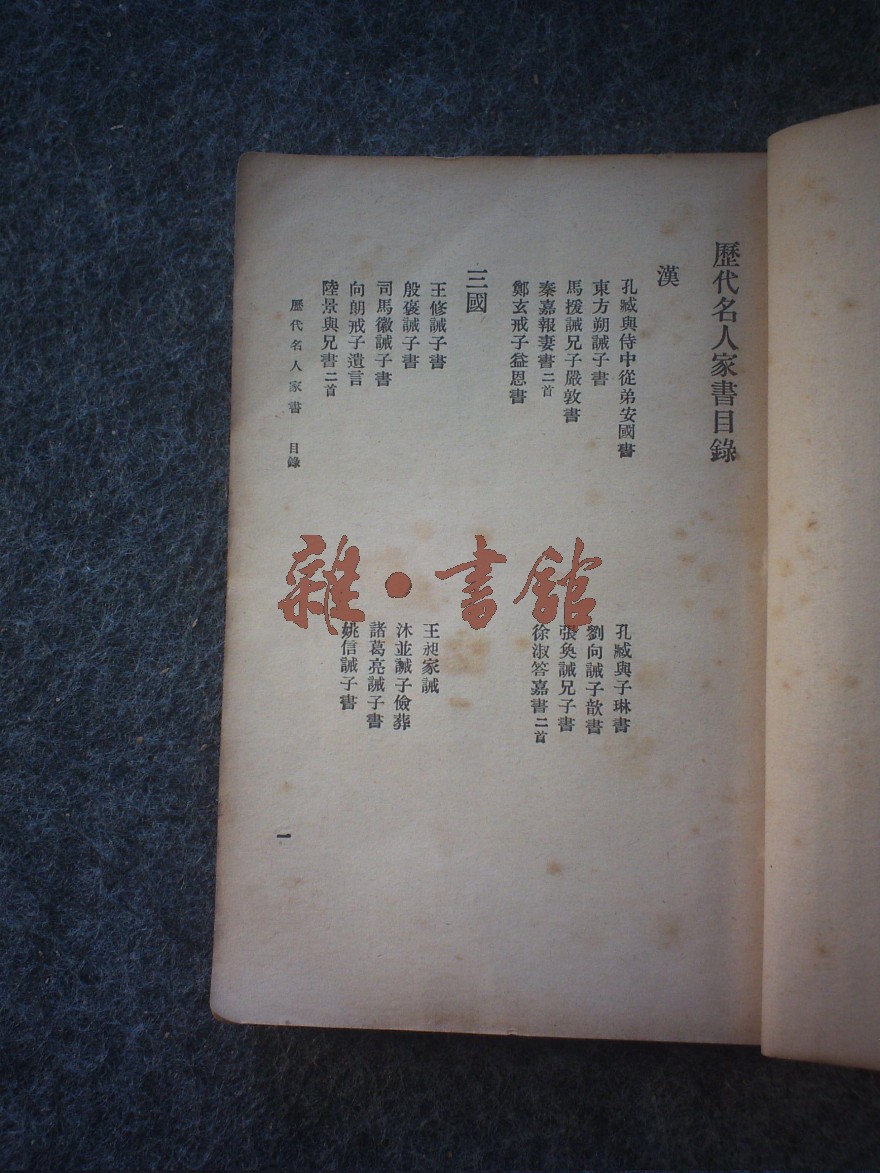 歷代名人家書目錄
漢
孔臧與侍中從弟安國書
孔臧與子琳書
東方朔誡子書
劉向誡子歆書
馬援誡兄子嚴敦書
張奐誡兄子書
秦嘉報妻書二首
徐淑答嘉書二首
鄭玄戒子益恩書
三國
王修誡子書
王昶家誡
殷褒誡子書
沐並誡子儉葬
司馬徽誡子書
諸葛亮誡子書
向朗戒子遺言
姚信誡子書
陸景與兄書二首
歷代名人家書 目錄
一
雜·書館